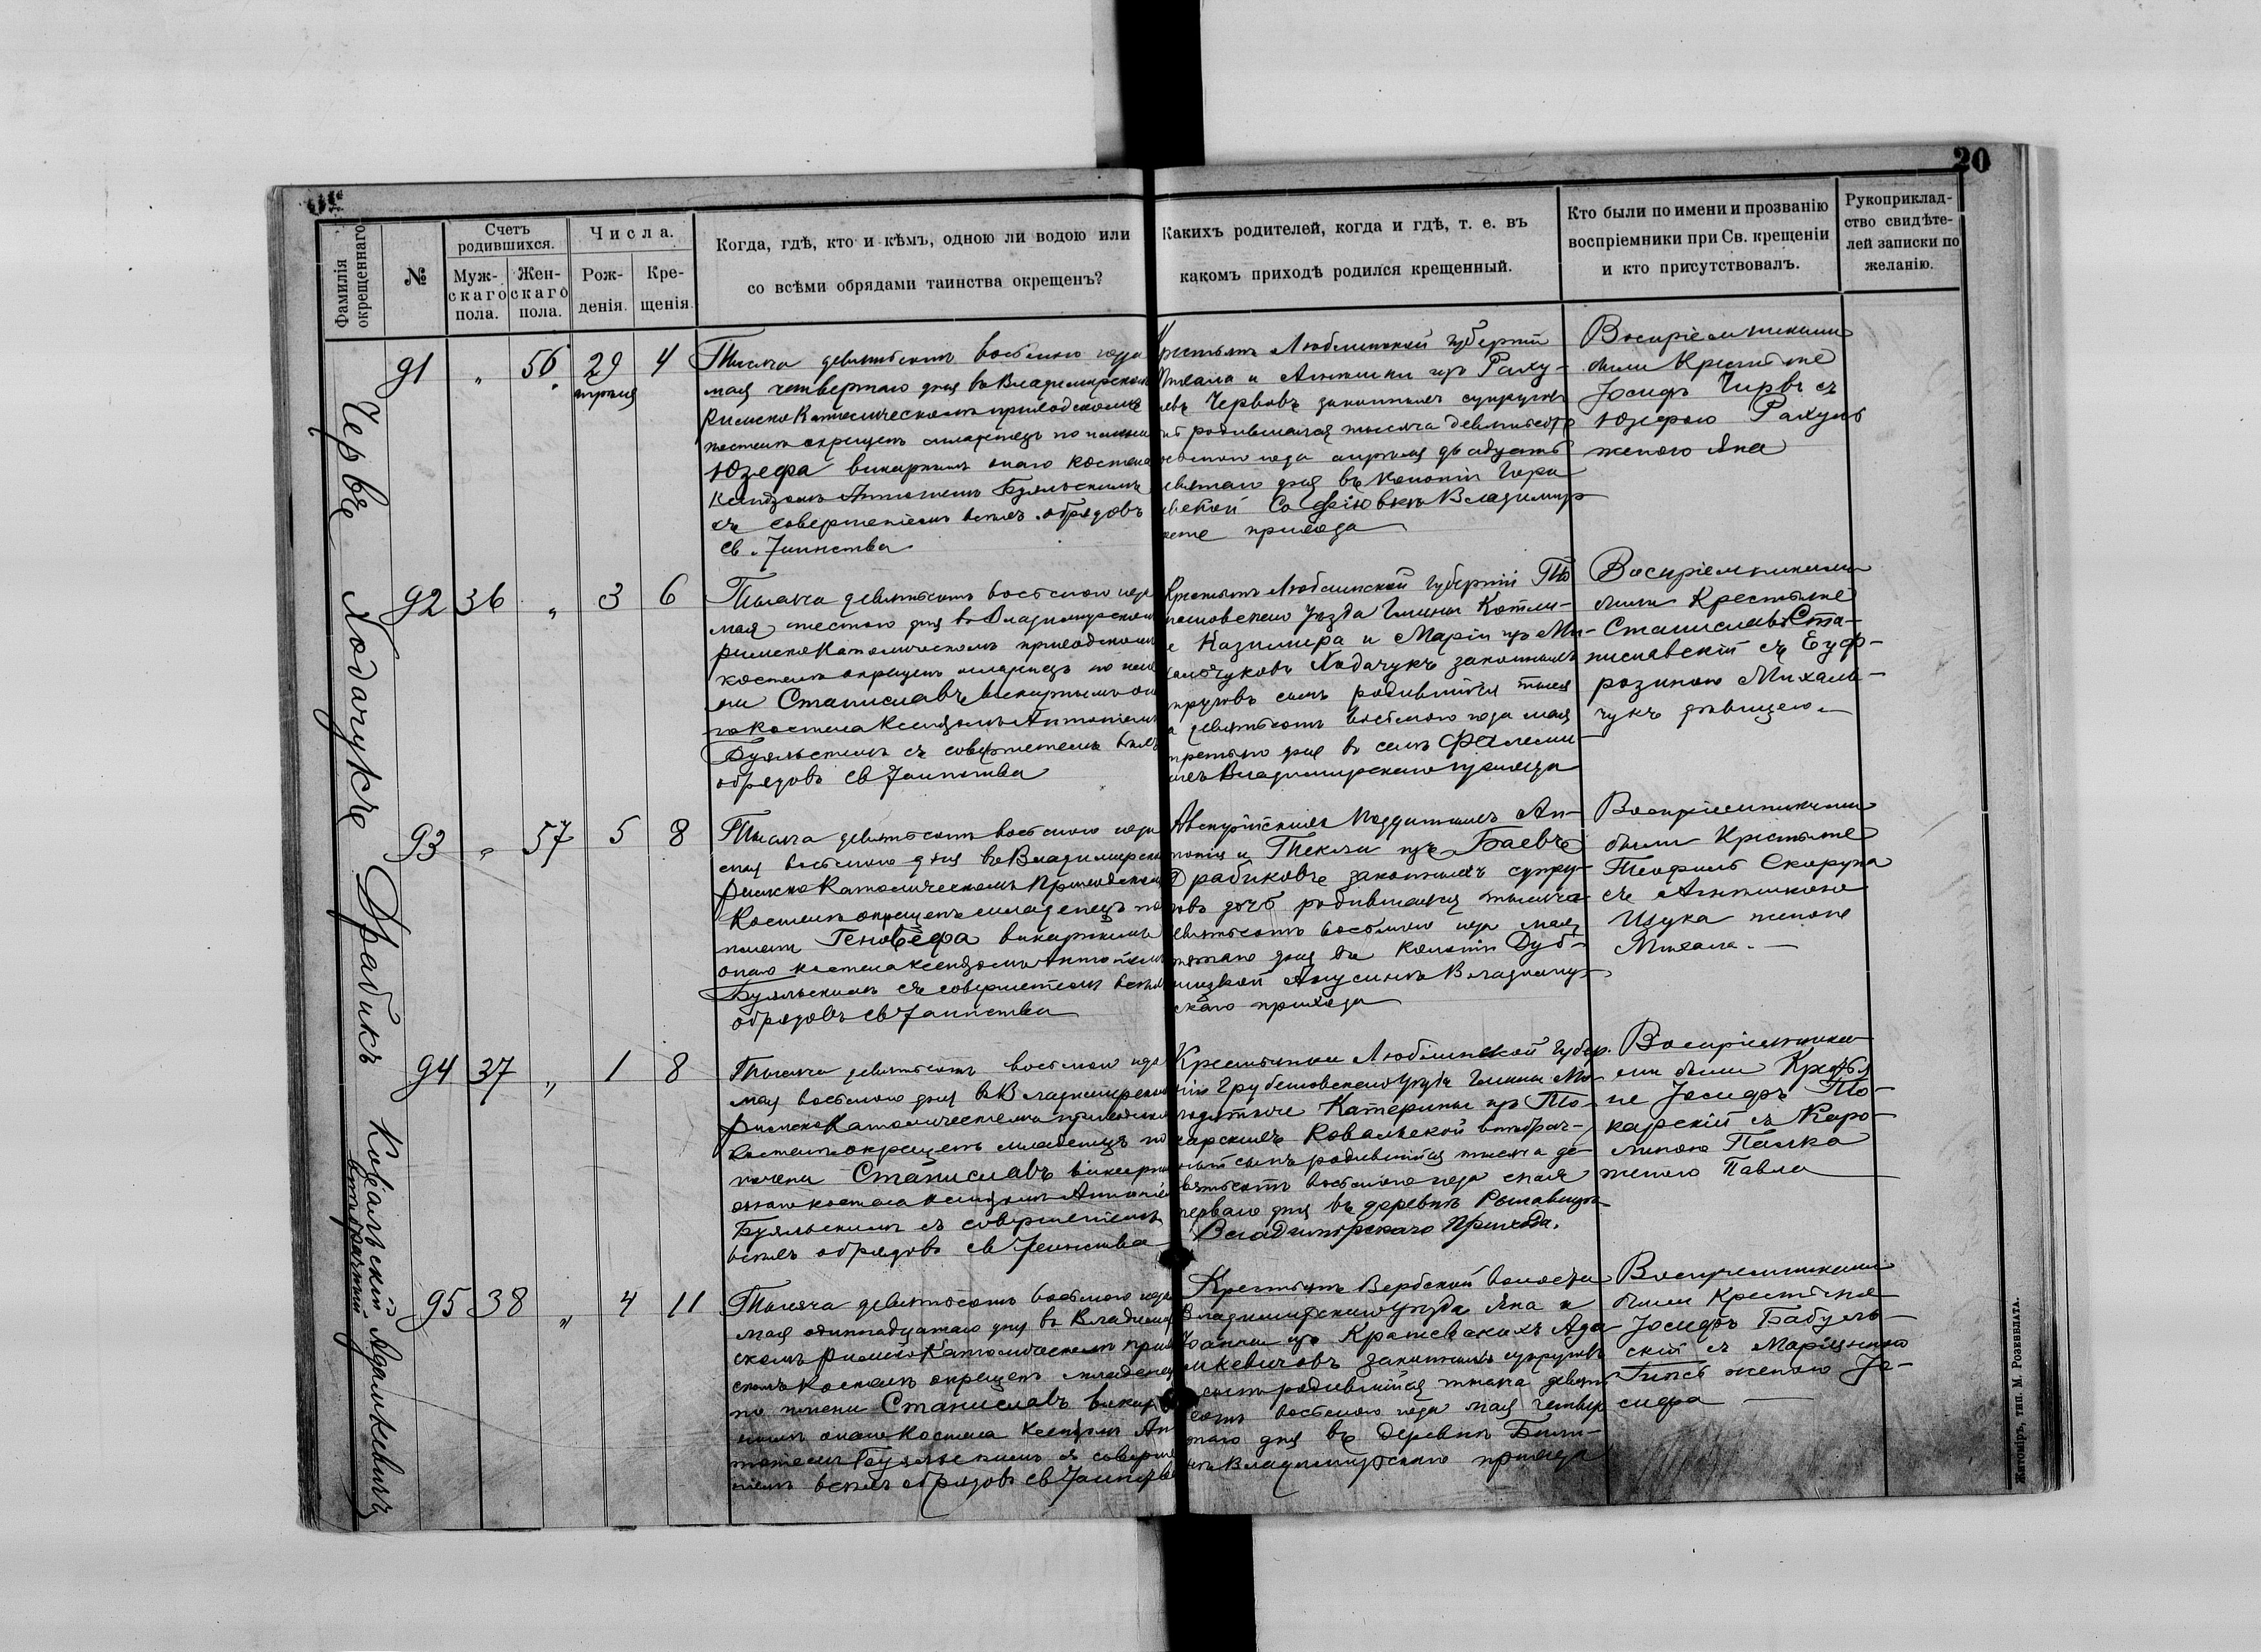 20
Фамилія окрещеннаго
№
Счетъ родившихся.
Мужскаго пола.
Женскаго пола.
Числа.
Рожденія.
Крещенія.
Когда, гдѣ, кто и кѣмъ, одною ли водою или
со всѣми обрядами таинства окрещенъ?
Какихъ родителей, когда и гдѣ, т. е. въ
какомъ приходѣ родился крещенный.
Кто были по имени и прозванію
воспріемники при Св. крещеніи
и кто присутствовалъ.
Рукоприклад-
ство свидѣте-
лей записки по
желанію.
Червъ
91 " 56 29 апрѣля 4
Тысяча девятьсотъ восьмого года
мая четвертаго дня въ Владимірскомъ
Римско Католическомъ приходскомъ
костелѣ окрещенъ младенецъ по имени
Юзефа викарнымъ онаго костела
Ксендзомъ Антоніемъ Буяльскимъ
съ совершеніемъ всѣхъ обрядовъ
Св. Таинства
Крестьянъ Люблинской губерніи
Михала и Антонины изъ Раху-
евъ Червовъ законныхъ супруговъ
родившаяся тысяча девятьсотъ
восьмого года апрѣля двадцать
девятаго дня въ колоніи
Софіювкѣ Владимір
прихода
Воспріемниками
были Крестьяне
Іосифъ Червъ съ
Юзефою Рахуль
женою Яна
Ходачукъ
92 36 " 3 6
Тысяча девятьсотъ восьмого года
мая шестого дня въ Владимірскомъ
римско Католическомъ приходскомъ
костелѣ окрещенъ младенецъ по име
ни Станиславъ викарнымъ она
го костела Ксендзомъ Антоніемъ
Буяльскимъ съ совершеніемъ всѣхъ
обрядовъ Св Таинства
Крестьянъ Люблинской губерніи То
машовскаго уѣзда Гмины Котли-
Казимира и Маріи изъ Ми-
хальчуковъ Ходачукъ законныхъ
супруговъ сынъ родившійся тыся
ча девятьсотъ восьмого года мая
третьяго дня въ селѣ Фалеми
чахъ Владимірскаго прихода
Воспріемниками
были Крестьяне
Станиславъ Ста-
ниславскій съ Еуф-
розиною Михаль-
чукъ дѣвицею
Драбикъ
93 " 57 5 8
Тысяча девятьсотъ восьмого года
мая восьмого дня въ Владимірском
Римско Католическомъ Приходскомъ
Костелѣ окрещенъ младенецъ по
имени Геновефа викарнымъ
онаго костела ксендзомъ Антоніемъ
Буяльскимъ съ совершеніемъ всѣхъ
обрядовъ Св Таинства
Австрійскихъ Подданныхъ Ан-
тонія и Теклы изъ Баевъ
Драбиковъ законныхъ супру-
говъ дочь родившаяся тысяча
девятьсотъ восьмого года мая
пятаго дня въ колоніи Дуб-
ницкой Анусинъ Владимір-
скаго прихода
Воспріемниками
были Крестьяне
Теофиль Скорупа
съ Антониною
Щука женою
Михала.
Ковальскій
внѣбрачный
94 37 " 1 8
Тысяча девятьсотъ восьмого года
мая восьмого дня въ Владимірском
римско Католическомъ приходском
костелѣ окрещенъ младенецъ по
имени Станиславъ викарнымъ
онаго костела ксендзомъ Антоніем
Буяльскимъ съ совершеніемъ
всѣхъ обрядовъ св Таинства
Крестьянки Люблинской Губер-
ніи Грубешовскаго уѣзда Гмины Мо-
Катерины изъ То-
карскихъ Ковальской внѣбрач-
ный сынъ родившійся тысяча де-
вятьсотъ восьмого года мая
перваго дня въ деревнѣ Рылавица
Владимірскаго Прихода.
Воспріемника-
ми были Крестья
не Іосифъ То-
карскій съ Каро-
линою Палка
женою Павла
Адамкевичъ
95 38 " 4 11
Тысяча девятьсотъ восьмого года
мая одиннадцатаго дня въ Владимір
скомъ римско Католическомъ приход
скомъ Костелѣ окрещенъ младенецъ
по имени Станиславъ викар
нымъ онаго Костела Ксендзомъ Ан
тоніемъ Буяльскимъ съ соверше
ніемъ всѣхъ обрядовъ св Таинства
Крестьянъ Вербской волости
Владимірскаго уѣзда Яна и
Іоанны изъ Крашевскихъ Ада
мкевичовъ законныхъ супруговъ
сынъ родившійся тысяча девять
сотъ восьмого года мая четвер
таго дня въ деревнѣ Били-
чи Владимірскаго прихода
Воспріемниками
были Крестьяне
Іосифъ Бабуль-
скій съ Маріанною
Гипсъ женою Іо-
сифа
Житоміръ, тип. М. Розенблата.